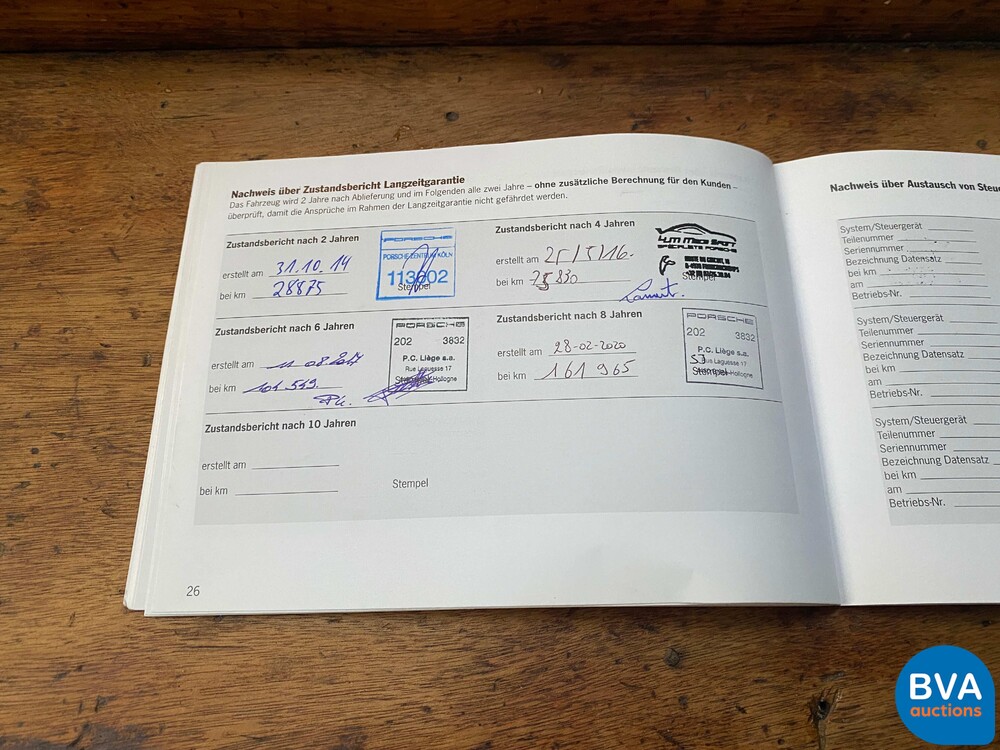 Nachweis über Zustandsbericht Langzeitgarantie
Das Fahrzeug wird 2 Jahre nach Ablieferung und im Folgenden alle zwei Jahre – ohne zusätzliche Berechnung für den Kunden –
überprüft, damit die Ansprüche im Rahmen der Langzeitgarantie nicht gefährdet werden.
Zustandsbericht nach 2 Jahren
erstellt am 31.10.14
bei km 28875
PORSCHE
PORSCHE-ZENTRUM KÖLN
113602
Stempel
Zustandsbericht nach 4 Jahren
erstellt am 25/5/16.
bei km 75830
SPECIALISTE PORSCHE
Stempel
Zustandsbericht nach 6 Jahren
erstellt am 11 08 2017
bei km 101.569.
PORSCHE
202 3832
P.C. Liège s.a.
Rue Laguesse 17
Stempel Hollogne
Zustandsbericht nach 8 Jahren
erstellt am 28-02-2020
bei km 161 965
PORSCHE
202 3832
P.C. Liège s.a.
Rue Laguesse 17
Stempel Hollogne
Zustandsbericht nach 10 Jahren
erstellt am
bei km
Stempel
26
Nachweis über Austausch von Steue
System/Steuergerät
Teilenummer
Seriennummer
Bezeichnung Datensatz
bei km
am
Betriebs-Nr.
System/Steuergerät
Teilenummer
Seriennummer
Bezeichnung Datensatz
bei km
am
Betriebs-Nr.
System/Steuergerät
Teilenummer
Seriennummer
Bezeichnung Datensatz
bei km
am
Betriebs-Nr.
BVA
auctions